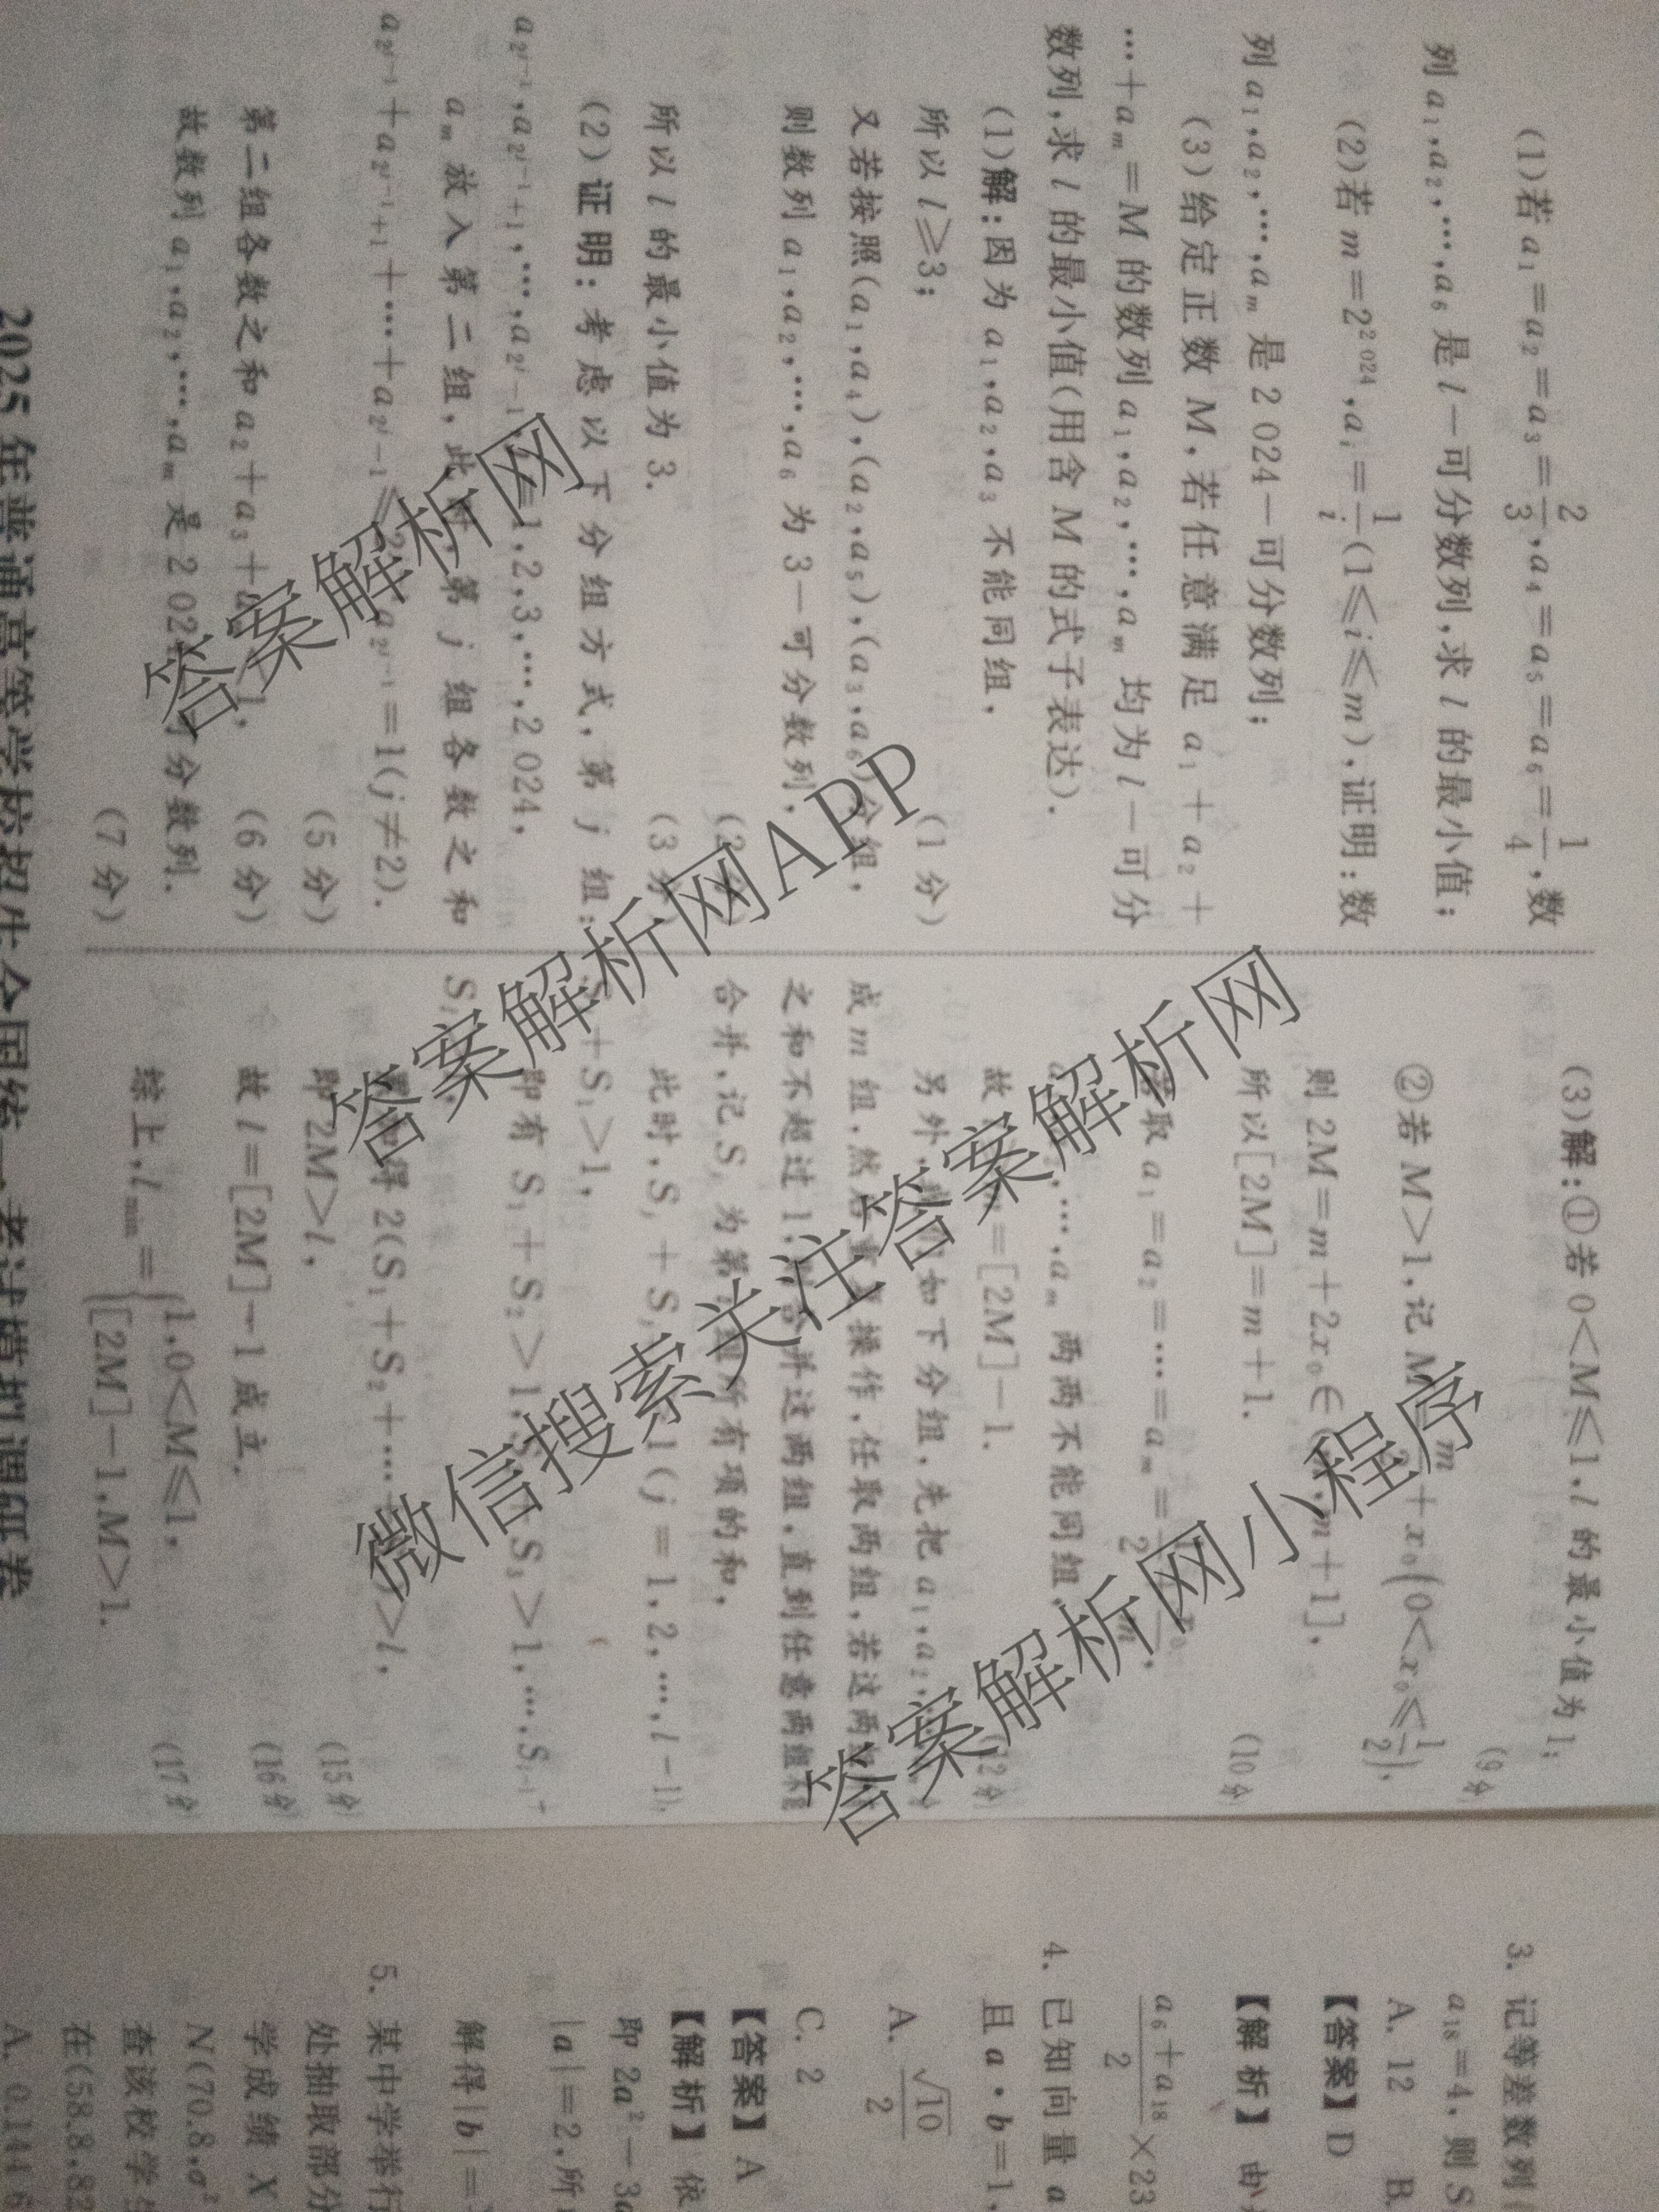 (1)若 a₁=a₂=a₃=2/3,a₄=a₅=a₆=1/4,数
列 a₁,a₂,…,a₆ 是 l－可分数列,求 l 的最小值;
(2)若 m=2²⁰²⁴,aᵢ=1/i(1≤i≤m),证明:数
列 a₁,a₂,…,aₘ 是 2 024－可分数列;
(3)给定正数 M,若任意满足 a₁+a₂+
…+aₘ=M 的数列 a₁,a₂,…,aₘ 均为 l－可分
数列,求 l 的最小值(用含 M 的式子表达).
(1)解:因为 a₁,a₂,a₃ 不能同组,
所以 l≥3;
(1 分)
又若按照(a₁,a₄),(a₂,a₅),(a₃,a₆)分组,
则数列 a₁,a₂,…,a₆ 为 3－可分数列,
(2 分)
所以 l 的最小值为 3.
(3 分)
(2)证明:考虑以下分组方式,第 j 组:
a_{2^{j-1}},a_{2^{j-1}+1},…,a_{2^j-1},j=1,2,3,…,2 024,
aₘ 放入第二组,此时,第 j 组各数之和
a_{2^{j-1}}+a_{2^{j-1}+1}+…+a_{2^j-1}≤ a_{2^{j-1}}=1(j≠2).
(5 分)
第二组各数之和 a₂+a₃+ 1,
(6 分)
故数列 a₁,a₂,…,aₘ 是 2 024 可分数列.
(7 分)
(3)解:①若 0<M≤1,l 的最小值为 1;
(9 分)
②若 M>1,记 M=m/2+x₀(0<x₀≤1/2),
则 2M=m+2x₀∈(m,m+1],
所以[2M]=m+1.
(10 分)
取 a₁=a₂=…=aₘ=
,…,aₘ 两两不能同组,
故 =[2M]－1.
(12 分)
另外, 如下分组,先把 a₁,a₂,…
成 m 组,然后 操作,任取两组,若这两组
之和不超过 1, 并这两组,直到任意两组不能
合并,记 S 为第 组所有项的和,
此时,S +S 1(j=1,2,…,l－1),
+S₁>1,
即有 S₁+S₂>1, S₃>1,…,S
S
得 2(S₁+S₂+… >l,
即 2M>l,
(15 分)
故 l=[2M]－1 成立.
(16 分)
综上,l_min={1,0<M≤1,
[2M]－1,M>1.
(17 分)
2025 年普通高等学校招生全国统一考试模拟调研卷
3. 记等差数列
a₁₈=4,则 S
A. 12 B.
【答案】D
【解析】由
(a₆+a₁₈)/2×23
4. 已知向量 a
且 a·b=1,
A. √10/2
C. 2
【答案】A
【解析】依
即 2a²－3a
|a|=2,所
解得|b|=
5. 某中学举行
处抽取部分
学成绩 X
N(70.8,σ²
查该校学生
在(58.8,82
A. 0.144 6
答案解析网
答案解析网APP
微信搜索关注答案解析网
答案解析网小程序